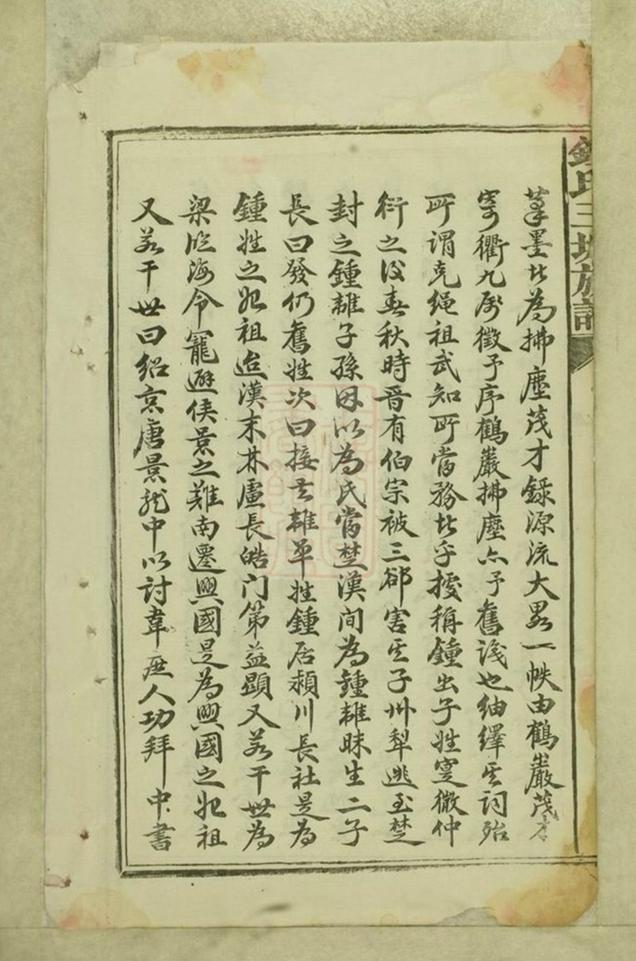 鍾氏三塘族譜
墨以為拂塵茂才錄源流大畧一帙由鶴巖茂才
寄衢九郵徵予序鶴巖拂塵亦予舊識也紬繹其詞殆
所謂克繩祖武知所當務者乎據稱鍾出子姓寔微仲
衍之後春秋時晉有伯宗被三郤害其子州犁逃至楚
封之鍾離子孫因以為氏當楚漢間為鍾離昧生二子
長曰發仍舊姓次曰接去離單姓鍾居潁川長社是為
鍾姓之始祖迨漢末林慮長皓門第益顯又若干世為
梁臨海令寵避侯景之難南遷興國是為興國之始祖
又若干世曰紹京唐景龍中以討韋庶人功拜中書